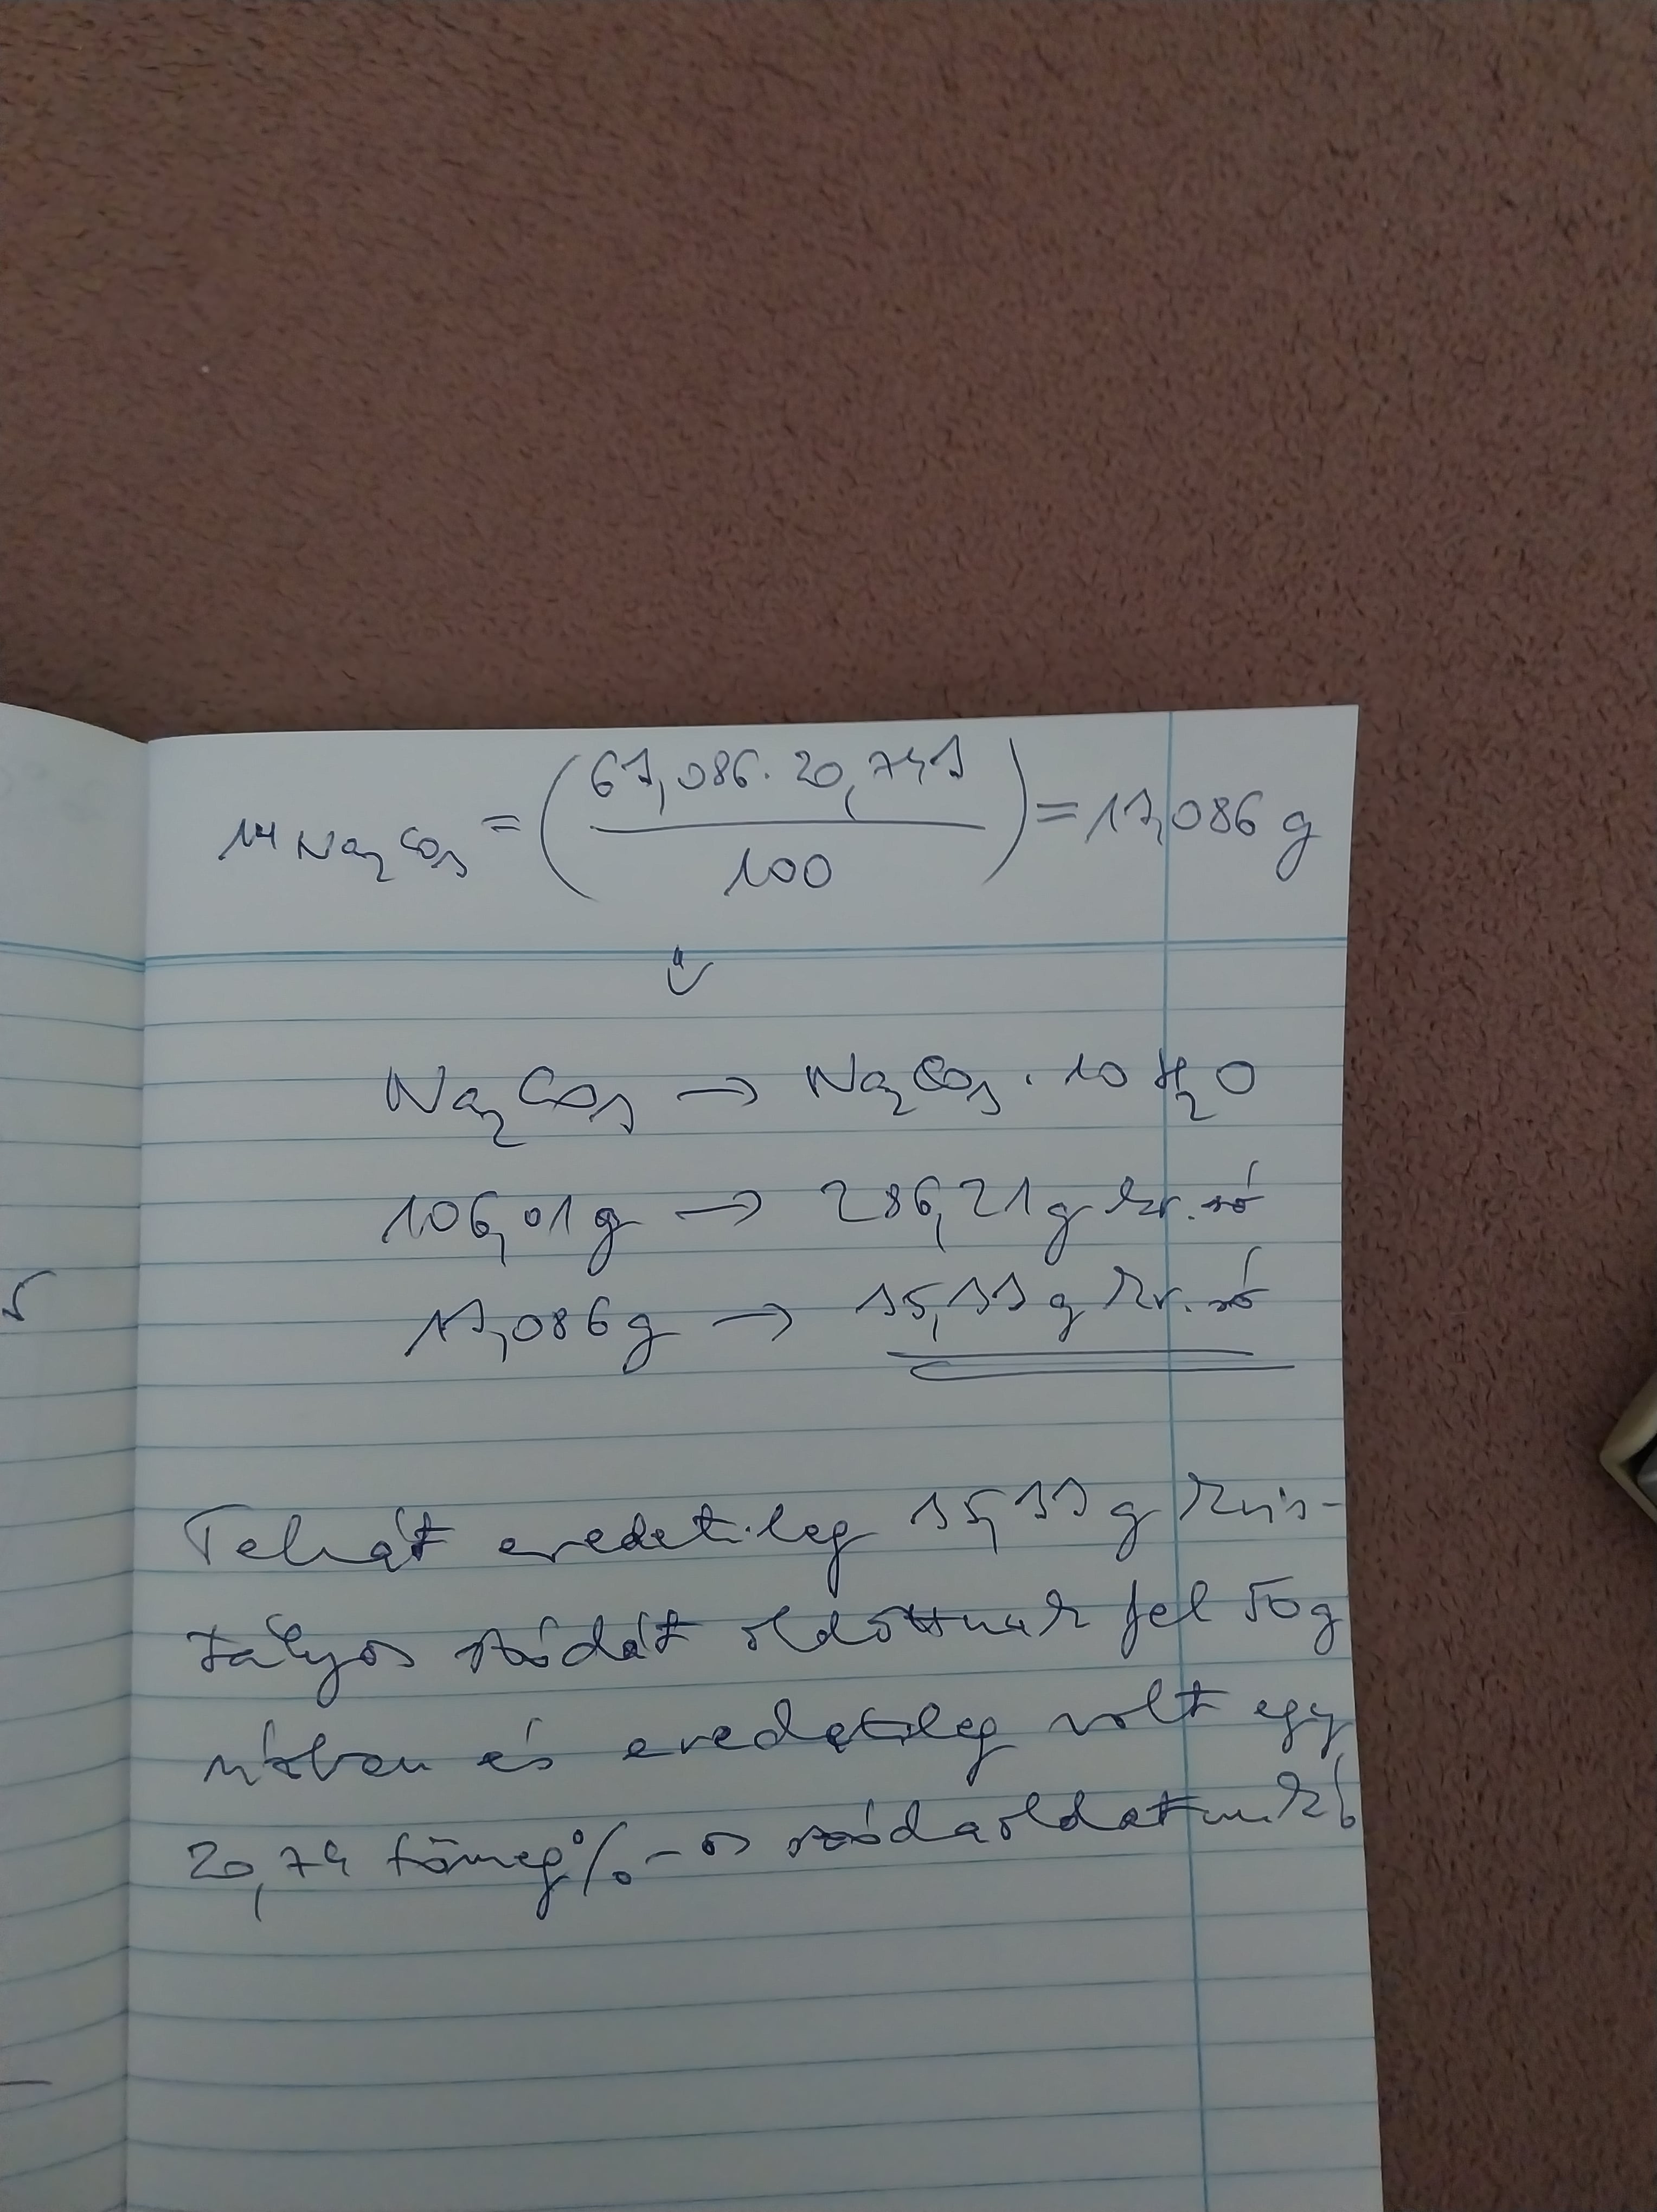 m Na₂CO₃ = (63,086 · 20,743 / 100) = 13,086 g
↓
Na₂CO₃ → Na₂CO₃ · 10 H₂O
106,01 g → 286,21 g kr. só
13,086 g → 35,33 g kr. só
Tehát eredetileg 35,33 g kris-
tályos szódát oldottunk fel 50 g
vízben és eredetileg volt egy
20,74 tömeg%-os szódaoldatunk!